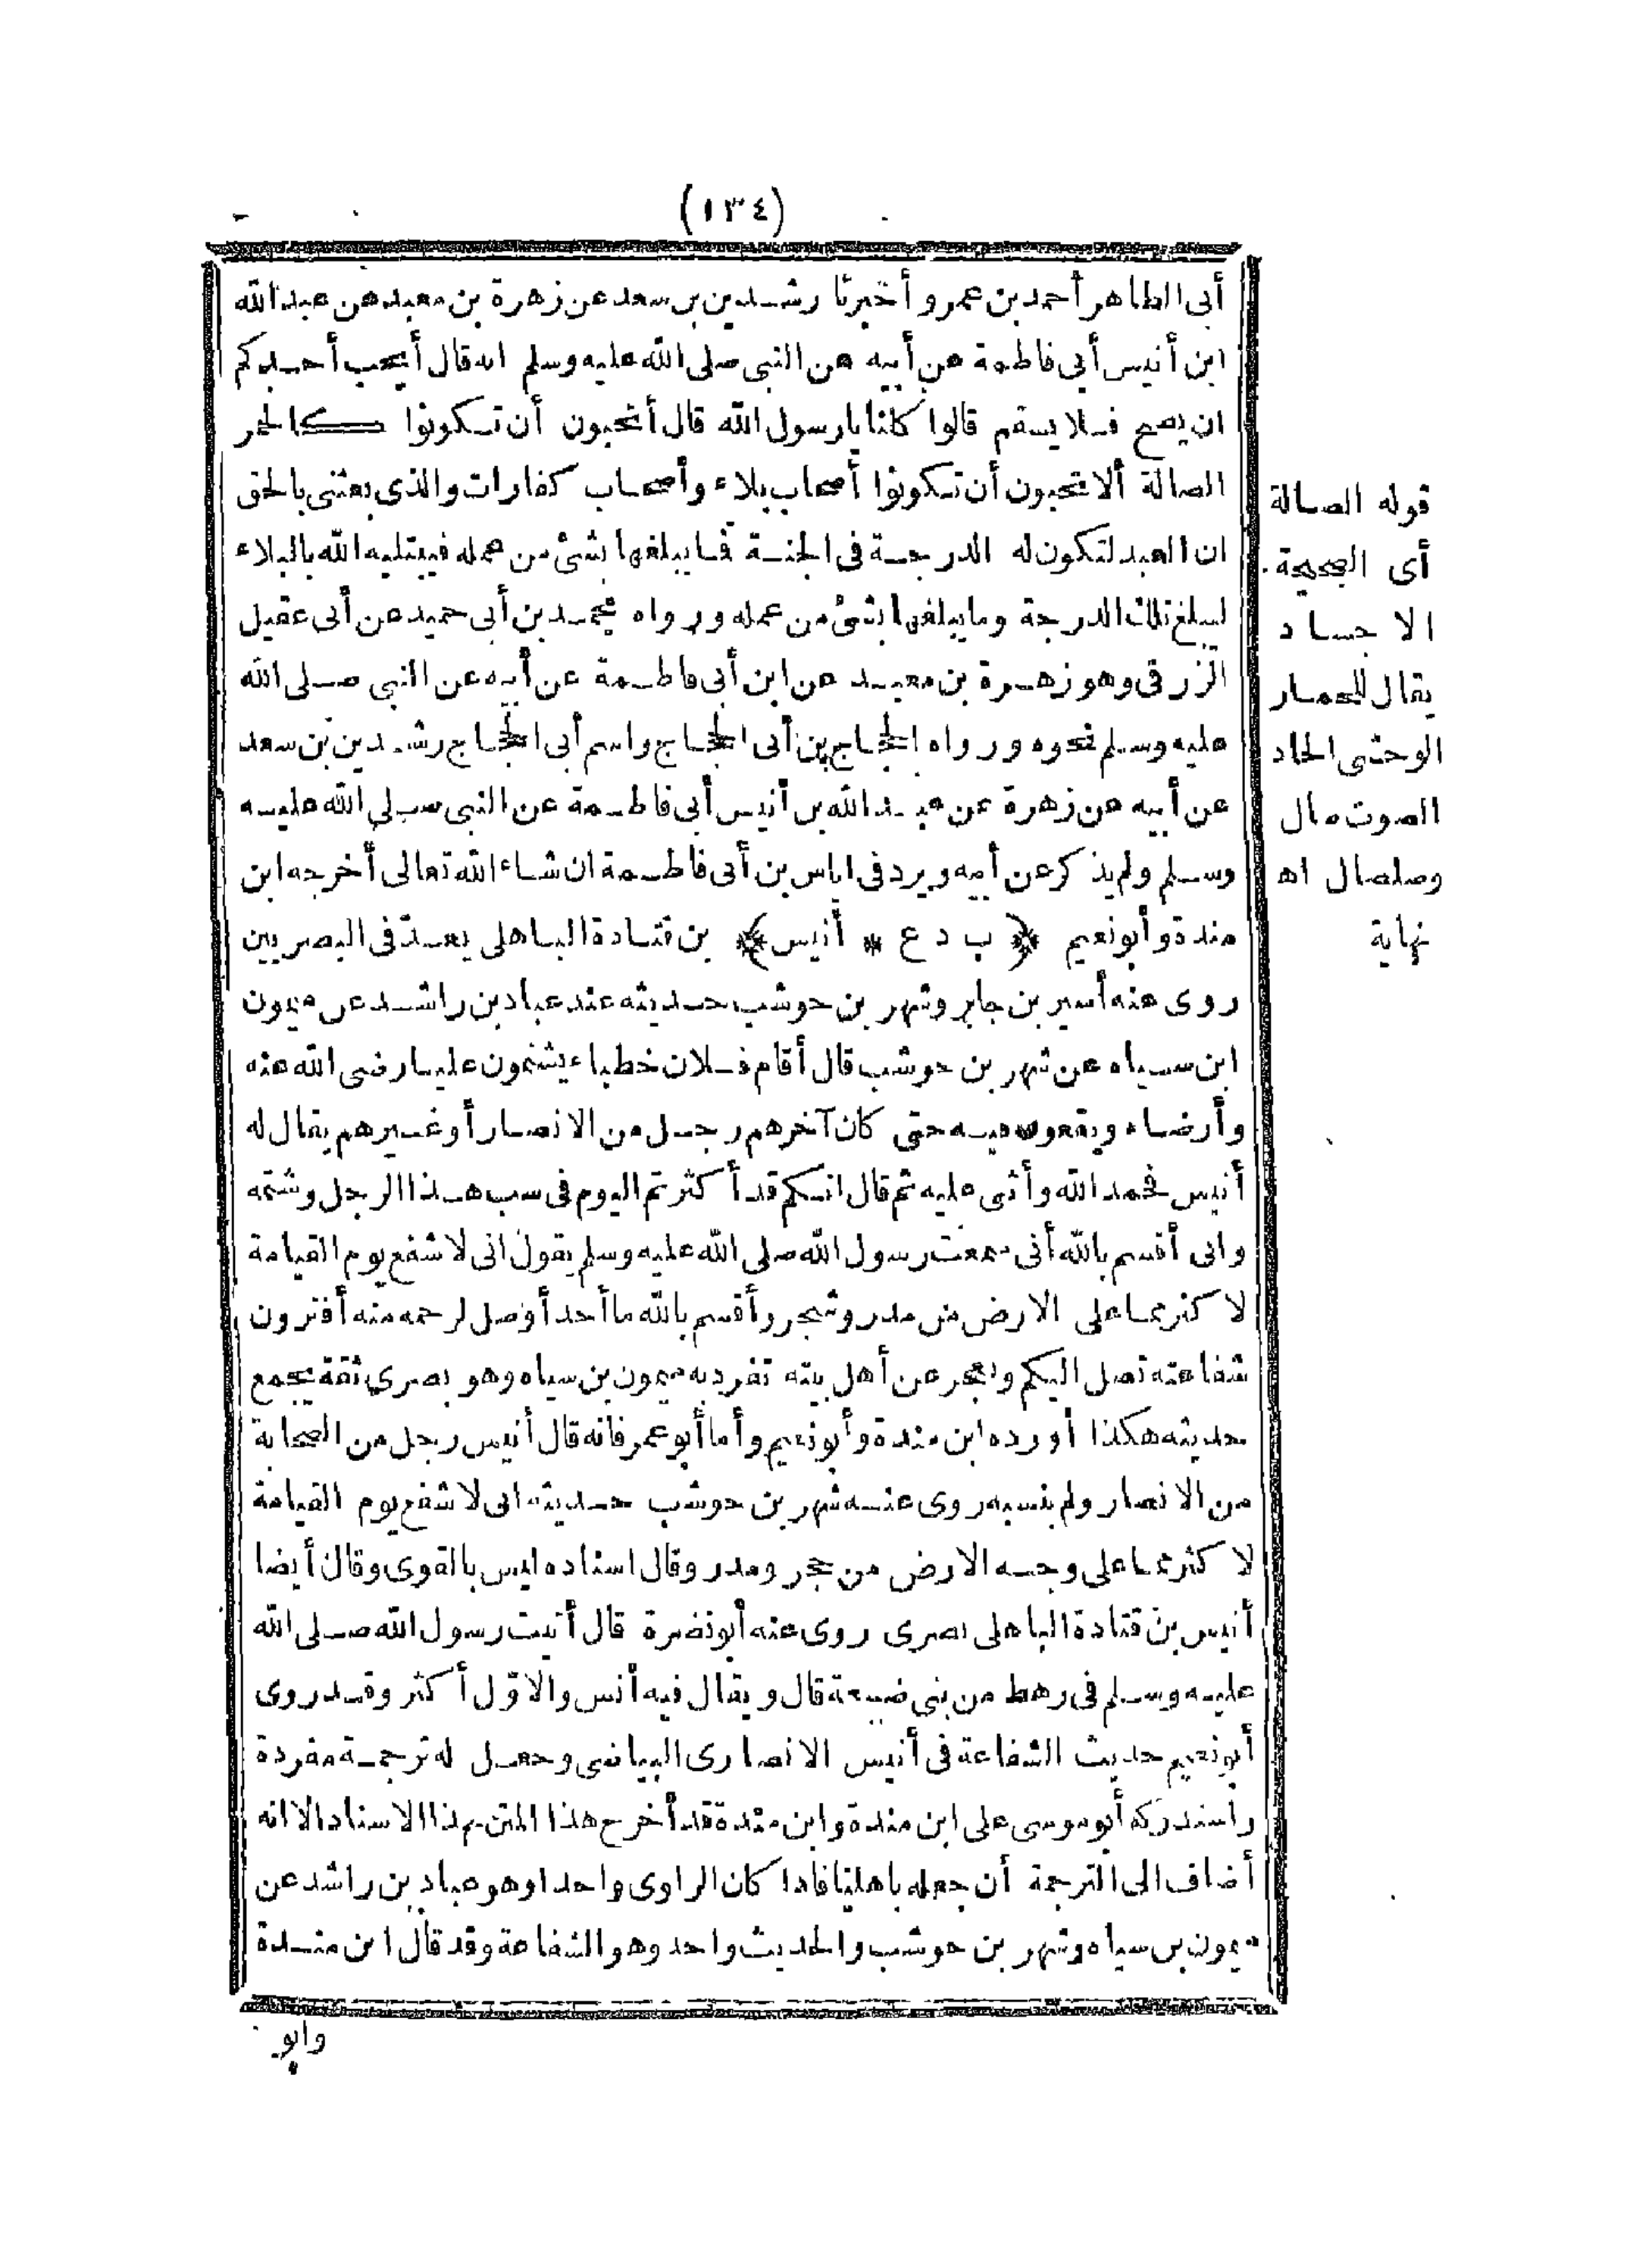 (١٣٤)
أبى الطاهر أحمد بن عمرو أخبرنا رشدين بن سعد عن زهرة بن معبد عن عبد الله
ابن أنيس أبى فاطمة عن أبيه عن النبى صلى الله عليه وسلم انه قال أيحب أحدكم
ان يصح فلا يسقم قالوا كلنا يارسول الله قال أتحبون أن تكونوا كالحمر
الصالة ألا تحبون أن تكونوا أصحاب بلاء وأصحاب كفارات والذى بعثنى بالحق
ان العبد لتكون له الدرجة فى الجنة فما يبلغها بشئ من عمله فيبتليه الله بالبلاء
ليبلغ تلك الدرجة وما يبلغها بشئ من عمله ورواه محمد بن أبى حميد عن أبى عقيل
الزرقى وهو زهرة بن معبد عن ابن أبى فاطمة عن أبيه عن النبى صلى الله
عليه وسلم نحوه ورواه الحجاج بن أبى الحجاج واسم أبى الحجاج رشدين بن سعد
عن أبيه عن زهرة عن عبد الله بن أنيس أبى فاطمة عن النبى صلى الله عليه
وسلم ولم يذكر عن أبيه ويرد فى اياس بن أبى فاطمة ان شاء الله تعالى أخرجه ابن
مندة وأبو نعيم ﴿ب د ع * أنيس﴾ بن قتادة الباهلى يعدّ فى البصريين
روى عنه أسير بن جابر وشهر بن حوشب حديثه عند عباد بن راشد عن ميمون
ابن سياه عن شهر بن حوشب قال أقام فلان خطباء يشتمون عليا رضى الله عنه
وأرضاه ويقعون فيه حتى كان آخرهم رجل من الانصار أو غيرهم يقال له
أنيس فحمد الله وأثنى عليه ثم قال انكم قد أكثرتم اليوم فى سب هذا الرجل وشتمه
وانى أقسم بالله أنى سمعت رسول الله صلى الله عليه وسلم يقول انى لاشفع يوم القيامة
لاكثر مما على الارض من مدر وشجر وأقسم بالله ما أحد أوصل لرحمه منه أفترون
شفاعته تصل اليكم وتعجز عن أهل بيته تفرد به ميمون بن سياه وهو بصرى ثقة يجمع
حديثه هكذا أورده ابن مندة وأبو نعيم وأما أبو عمر فانه قال أنيس رجل من الصحابة
من الانصار ولم ينسبه روى عنه شهر بن حوشب حديثه انى لاشفع يوم القيامة
لاكثر مما على وجه الارض من حجر ومدر وقال اسناده ليس بالقوى وقال أيضا
أنيس بن قتادة الباهلى بصرى روى عنه أبو نضرة قال أتيت رسول الله صلى الله
عليه وسلم فى رهط من بنى ضبيعة قال ويقال فيه أنس والاوّل أكثر وقد روى
أبو نعيم حديث الشفاعة فى أنيس الانصارى البياضى وجعل له ترجمة مفردة
واستدركه أبو موسى على ابن مندة وابن مندة قد أخرج هذا المتن بهذا الاسناد الا انه
أضاف الى الترجمة أن جعله باهليا فاذا كان الراوى واحدا وهو عباد بن راشد عن
ميمون بن سياه وشهر بن حوشب والحديث واحد وهو الشفاعة وقد قال ابن مندة
وابو
قوله الصالة
أى الصحيحة
الاجساد
يقال للحمار
الوحشى الحاد
الصوت صال
وصلصال اه
نهاية